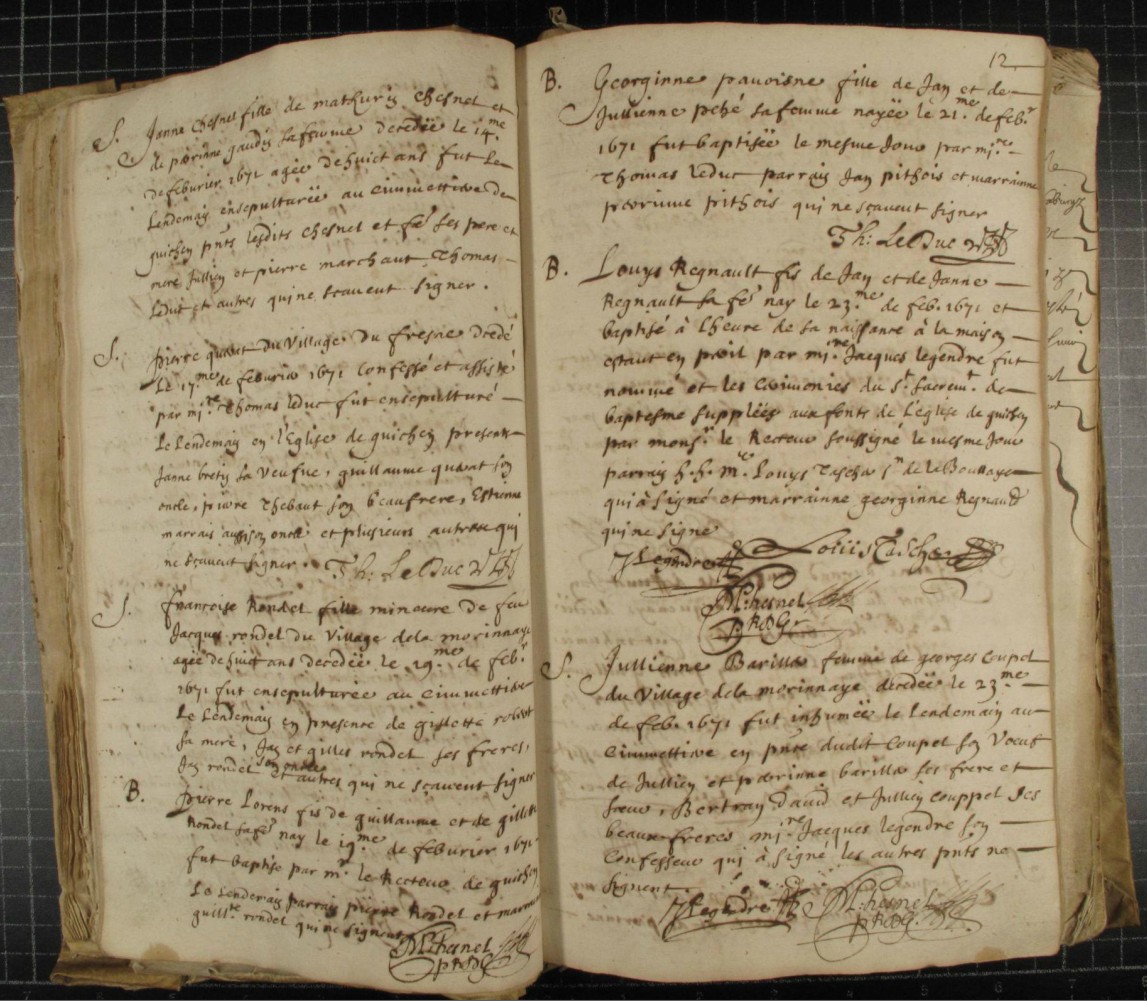 S. Janne Chesnel fille de mathurin Chesnel et
de perrinne gaudin sa femme decedée le 14.me
de feburier 1671 agée de huict ans fut le
lendemain ensepulturée au cimmettiere de
guichen pnts lesdits Chesnel et fe ses pere et
mere Jullien et pierre marchant Thomas
leduc et autres qui ne scavent signer.
S. pierre quavat du Village Du fresne decedé
Le 17.me de feburier 1671 Confessé et assisté
par mi.re Thomas leduc fut ensepulturé
Le Lendemain en l'Eglise de guichen presents
Janne bretin sa veufve, guillaume quavat son
oncle, pierre Thebaut son beaufrere, Estienne
marrais aussi son oncle et plusieurs autres qui
ne scavent signer. Th: LeDuc
S. françoise Rondel fille mineure de feu
Jacques rondel du Village dela morinnaye
agée de huict ans decedée le 19.me de feb.r
1671 fut ensepulturée au cimmettiere
Le Lendemain en presence de gillette robert
sa mere, Jan et gilles rondel ses freres,
Jan rondel son oncle et autres qui ne scavent signer
B. pierre Lorens fis de guillaume et de gillette
Rondel sa fe nay le 19.me de feburier 1671
fut baptise par m.r le Recteur de guichen
Le Lendemain parrain pierre Rondel et marraine
guill.te rondel qui ne signent
M. Chesnel
p R D G
12
B. Georginne pavoisne fille de Jan et de
Jullienne peché sa femme nayée le 21.me de feb.r
1671 fut baptisée le mesme Jour par mi.re
Thomas leduc parrain Jan pithois et marrainne
perrinne pithois qui ne sçavent signer
Th: LeDuc
B. Louys Regnault fis de Jan et de Janne
Regnault sa fe nay le 23.me de feb. 1671 et
baptisé à Lheure de sa naissance à la maison
estant en peril par mi.re Jacques legendre fut
nommé et les Cerimonies du S.t Sacrem.t de
baptesme supplées aux fonts de Léglise de guichen
par mons.r le Recteur soussigné le mesme Jour
parrain h. h. m.e Louys Tascher s.r de la Boullaye
qui à signé et marrainne georginne Regnaud
qui ne signe
J Legendre Louis Tascher
M. Chesnel
p R D Gr
S. Jullienne Barilla femme de georges Coupel
du Village dela morinnaye decedée le 23.me
de feb. 1671 fut inhumée le Lendemain au
Cimmettiere en pnce dudit Coupel son Veuf
de Jullien et perrinne barilla ses frere et
sœur, Bertran david et Jullien couppel ses
beaux freres mi.re Jacques legendre son
Confesseur qui à signé les autres pnts ne
signent.
J Legendre M. Chesnel
p R D G.